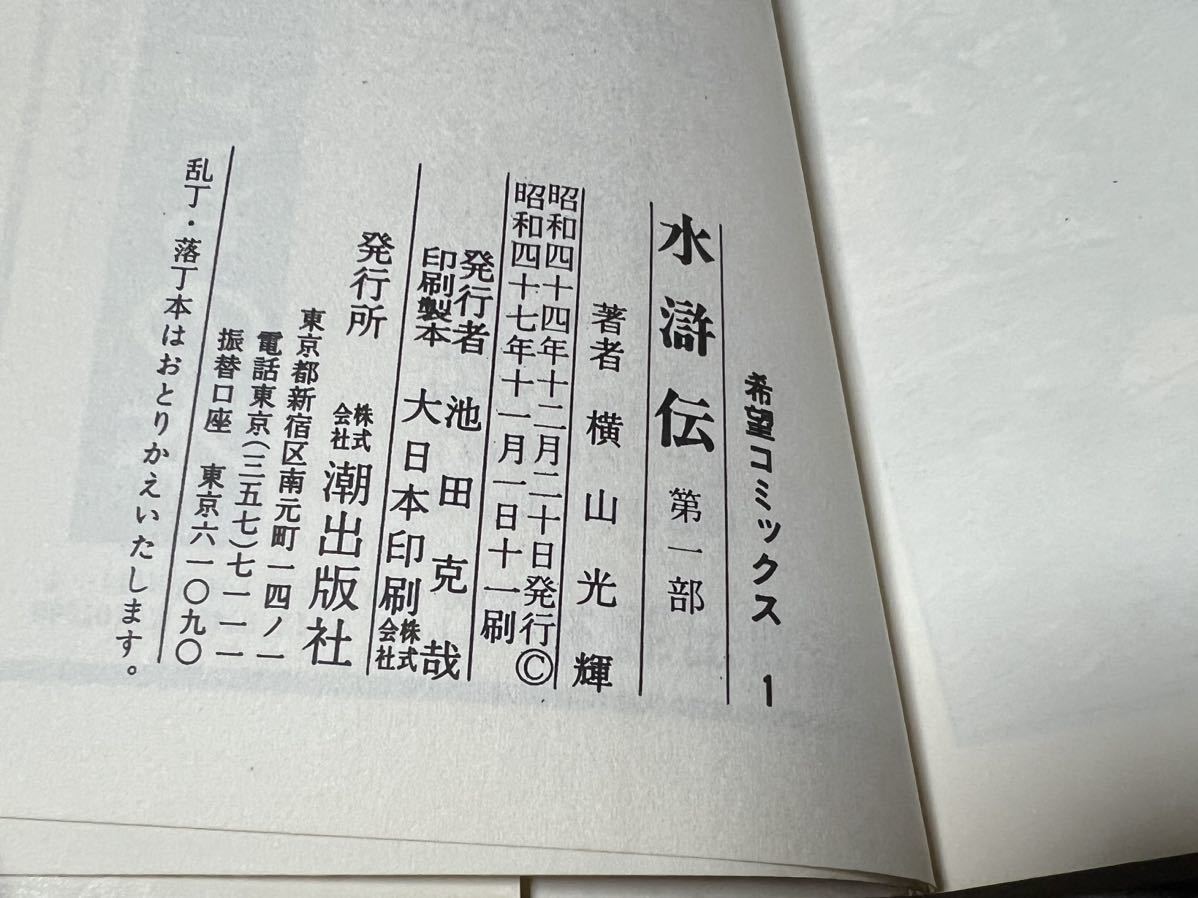 希望コミックス 1
水滸伝 第一部
著者 横山光輝
昭和四十四年十二月二十日発行©
昭和四十七年十一月一日十一刷
発行者 池田克哉
印刷製本 大日本印刷株式会社
発行所 株式会社 潮出版社
東京都新宿区南元町一四ノ一
電話東京(三五七)七一一一
振替口座 東京六一〇九〇
乱丁・落丁本はおとりかえいたします。